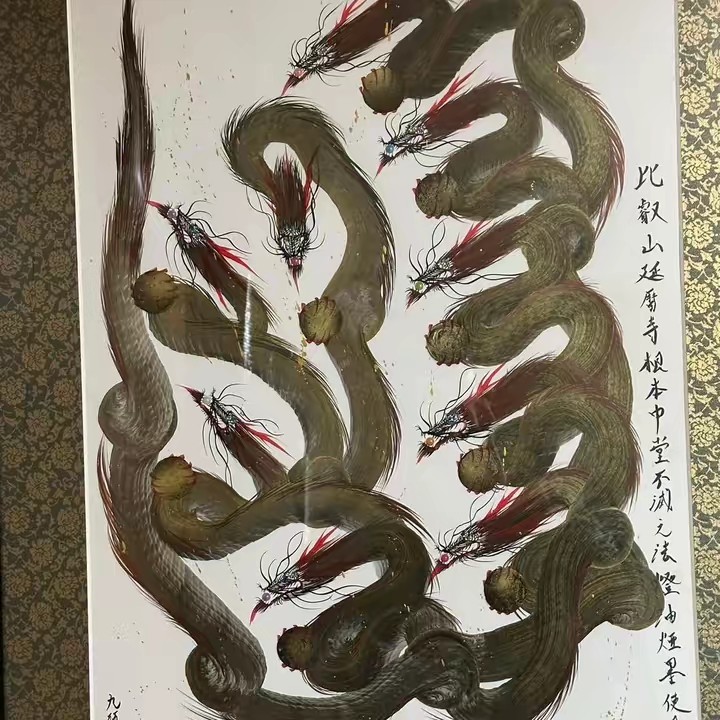 比叡山延暦寺根本中堂不滅之法燈由煙墨使
九頭